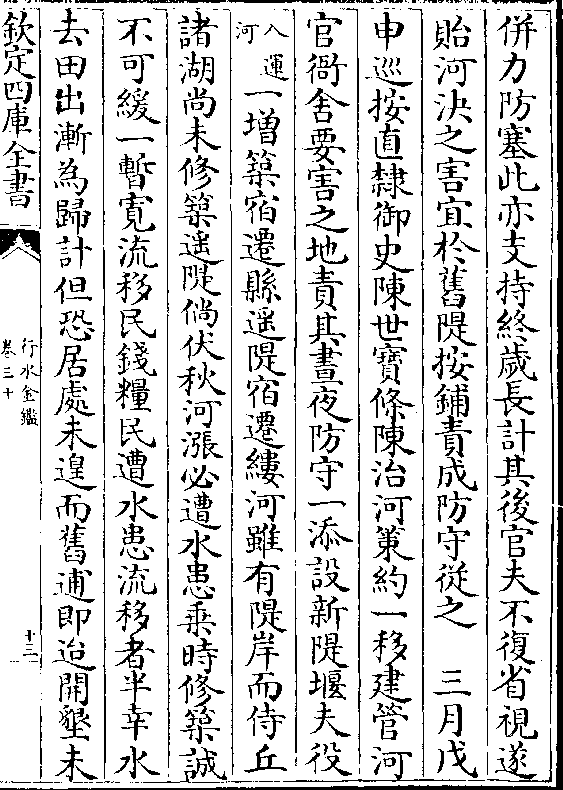 併力防塞此亦支持終歲長計其後官夫不復省視遂
貽河決之害宜於舊隄按鋪責成防守從之　三月戊
申巡按直隸御史陳世寶條陳治河策約一移建管河
官衙舍要害之地責其晝夜防守一添設新隄堰夫役
入運河
一增築宿遷縣遥隄宿遷縷河雖有隄岸而侍丘
諸湖尚未修築遥隄倘伏秋河漲必遭水患乗時修築誠
不可緩一暫寛流移民錢糧民遭水患流移者半幸水
去田出漸為歸計但恐居處未遑而舊逋即迨開墾未
欽定四庫全書
行水金鑑
卷三十
十三